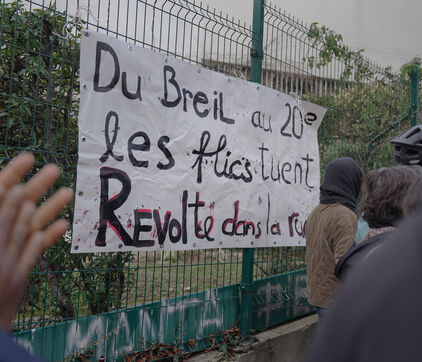 Du BreiL au 20e
les flics tuent
REVOLTé dans la ru